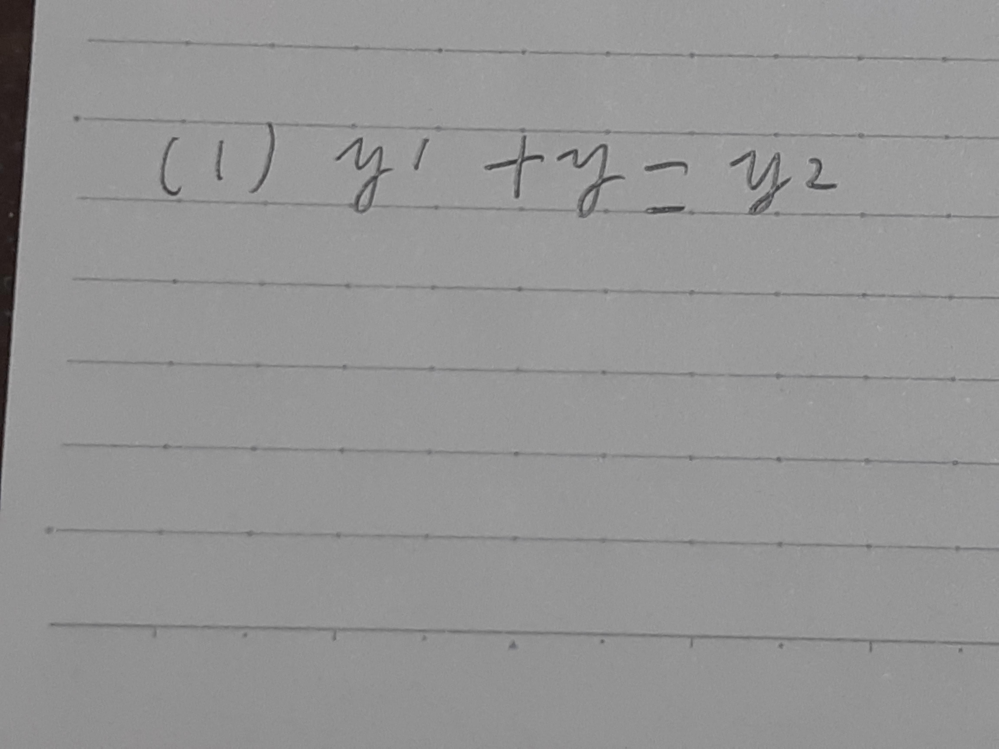 (1) y' + y = y2